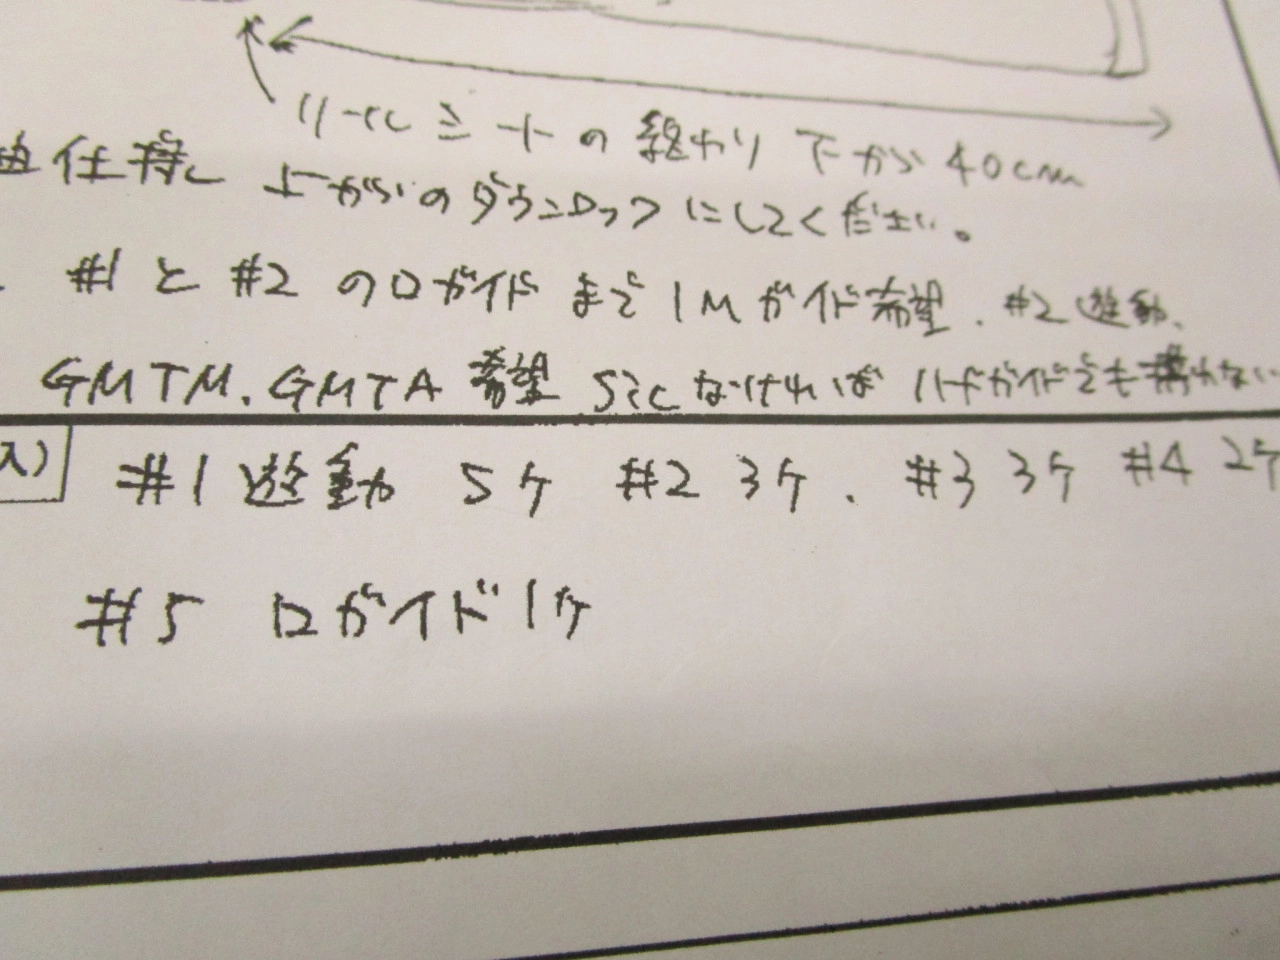 リールシートの終わり 下から40cm
仕様に 上からのダウンロックにしてください。
#1と#2の口ガイドまで1Mガイド希望. #2遊動.
GMTM. GMTA 希望 Sicなければハードガイドでも構わない
入)
#1遊動 5ヶ #2 3ヶ. #3 3ヶ #4 2ケ
#5 口ガイド1ヶ